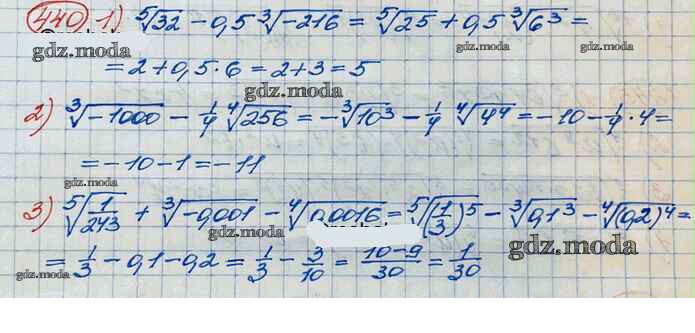 440 1) ⁵√32 − 0,5 ³√−216 = ⁵√25 + 0,5 ³√6³ =
gdz.moda gdz.moda
= 2 + 0,5 · 6 = 2 + 3 = 5
gdz.moda
2) ³√−1000 − 1/4 ⁴√256 = −³√10³ − 1/4 ⁴√4⁴ = −10 − 1/4 · 4 =
= −10 − 1 = −11
gdz.moda
gdz.moda
3) ⁵√1/243 + ³√−0,001 − ⁴√0,0016 = ⁵√(1/3)⁵ − ³√0,1³ − ⁴√(0,2)⁴ =
gdz.moda
= 1/3 − 0,1 − 0,2 = 1/3 − 3/10 = 10−9/30 = 1/30
gdz.moda